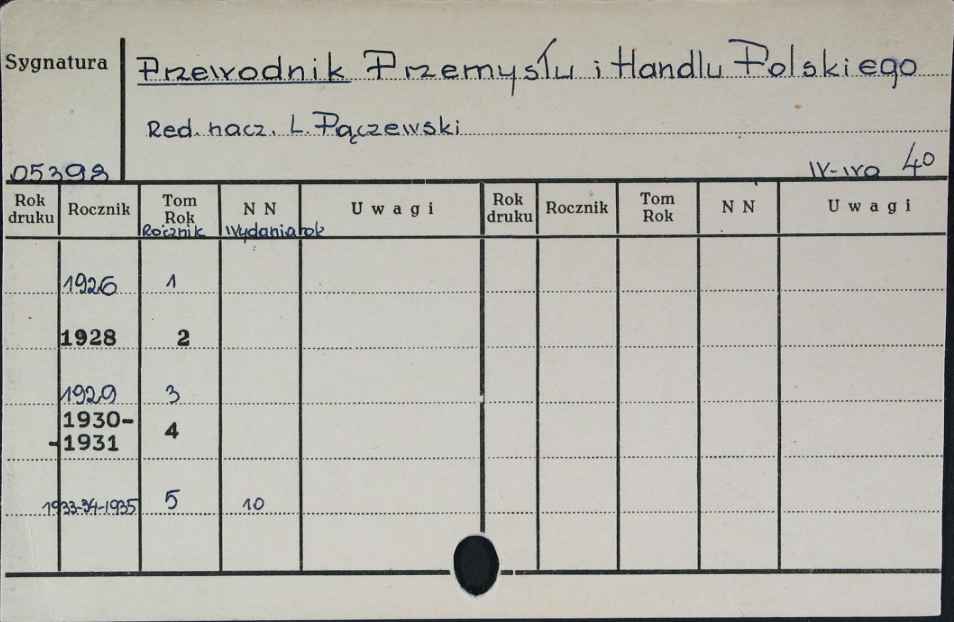 Sygnatura
Przewodnik Przemysłu i Handlu Polskiego
Red. nacz. L. Pączewski
05398
W-wa 4°
Rok druku Rocznik Tom Rok N N Uwagi Rok druku Rocznik Tom Rok N N Uwagi
Rocznik Wydania rok
1926 1
1928 2
1929 3
1930-
-1931 4
1933-34-1935 5 10